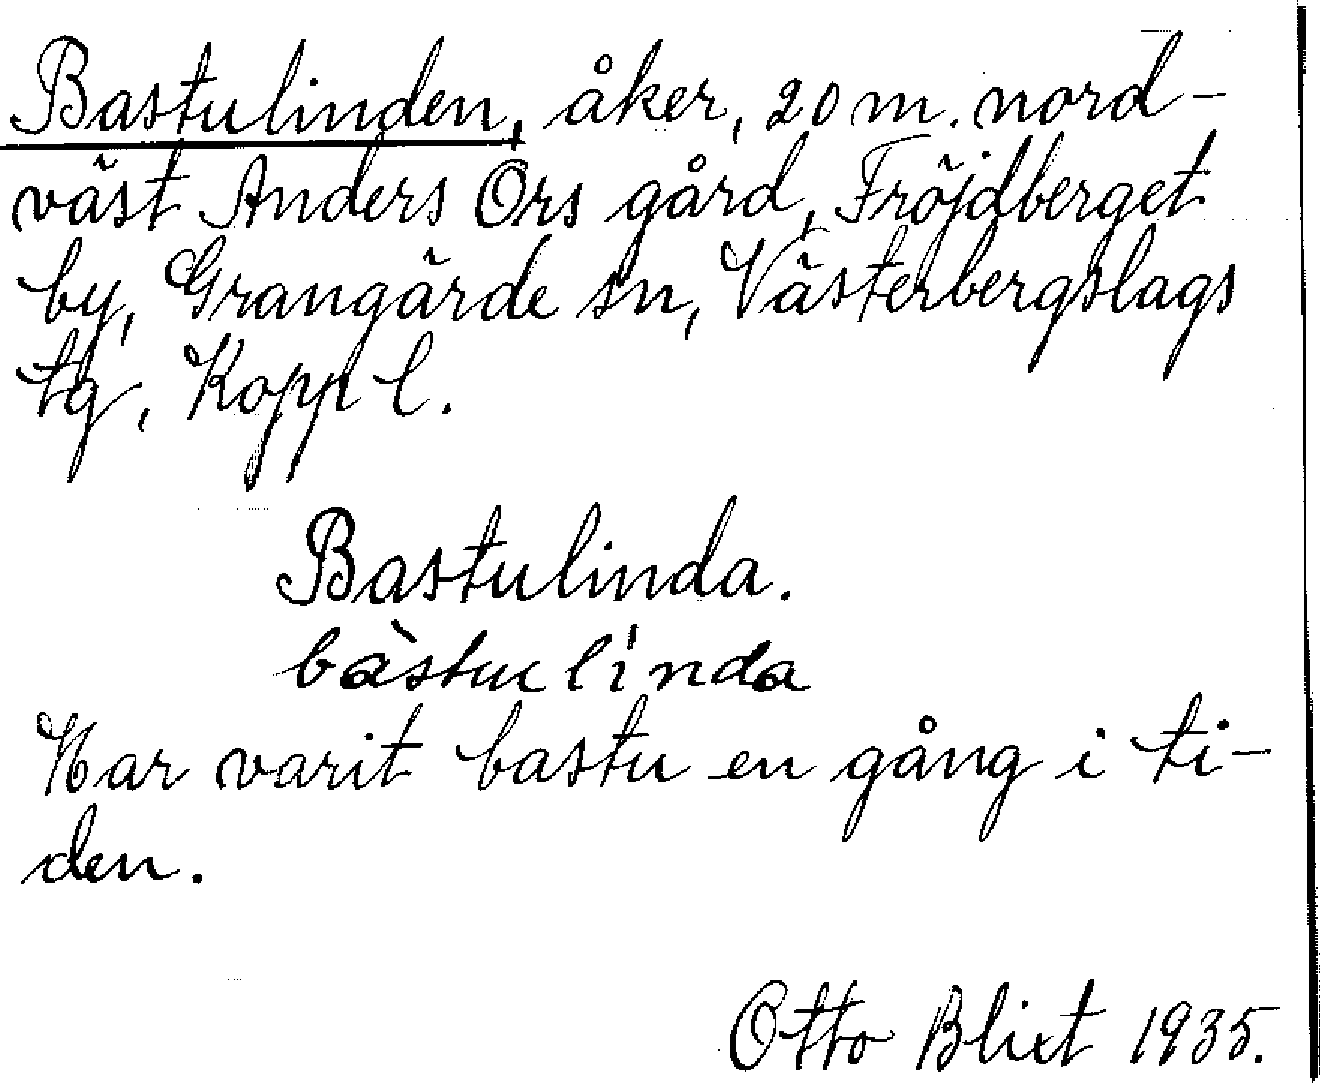 Bastulinden, åker, 20 m. nord-
väst Anders Ors gård, Fröjdberget
by, Grangärde sn, Västerbergslags
tg, Kopp l.
Bastulinda.
bàstu línda
Har varit bastu en gång i ti-
den.
Otto Blixt 1935.